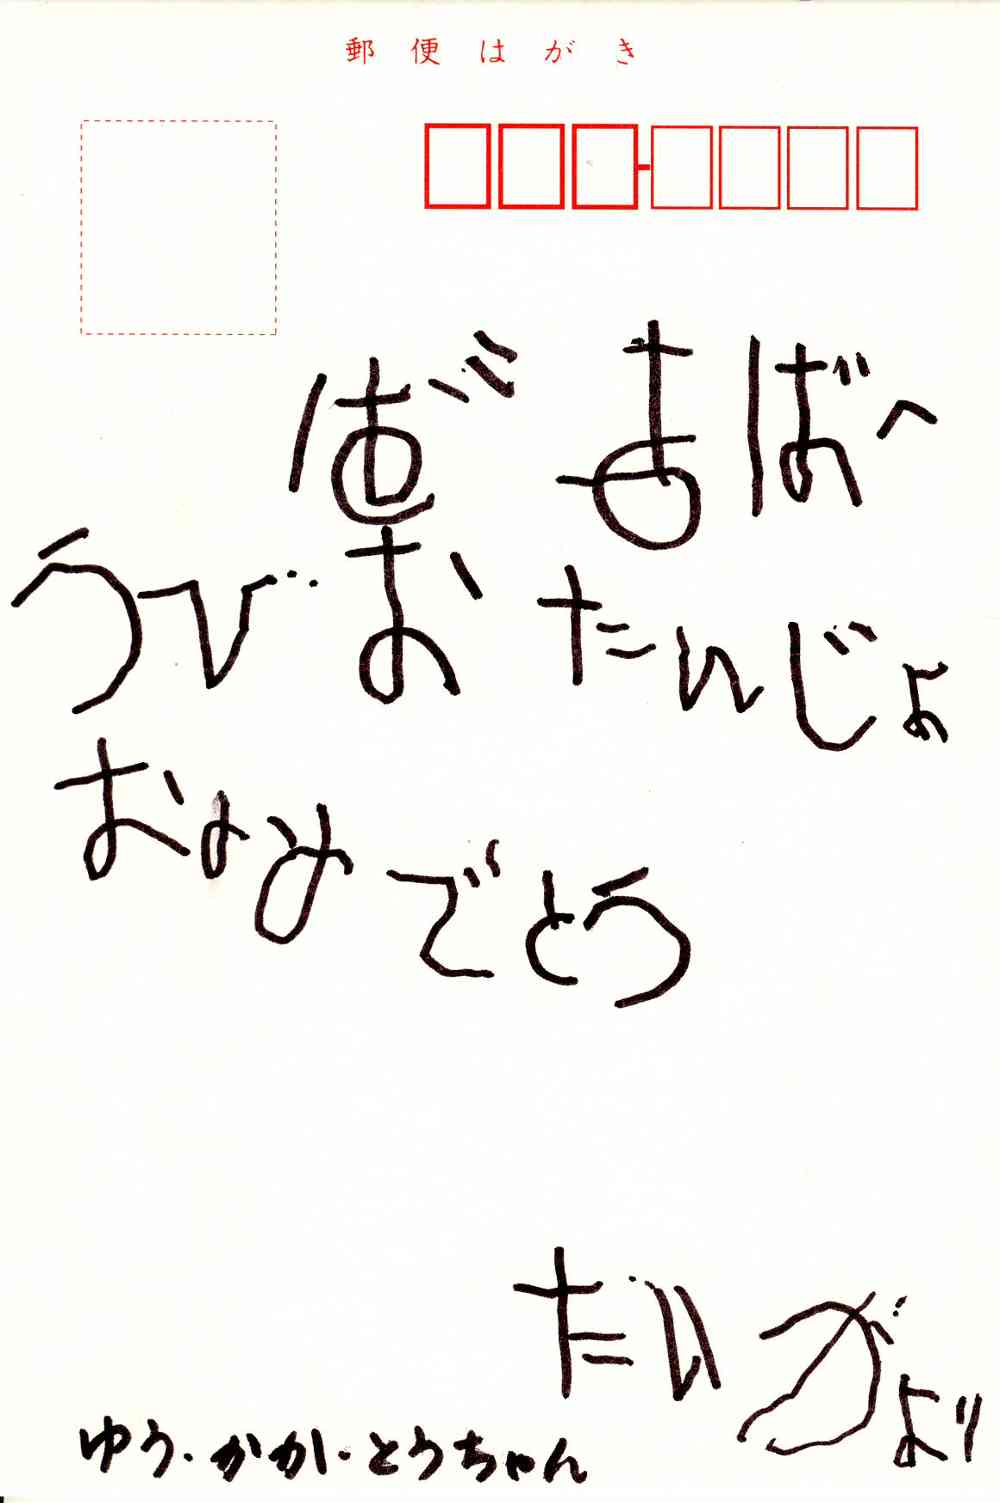 郵便はがき
ばあばへ
うび おたんじょ
おめでとう
たいがより
ゆう・かか・とうちゃん